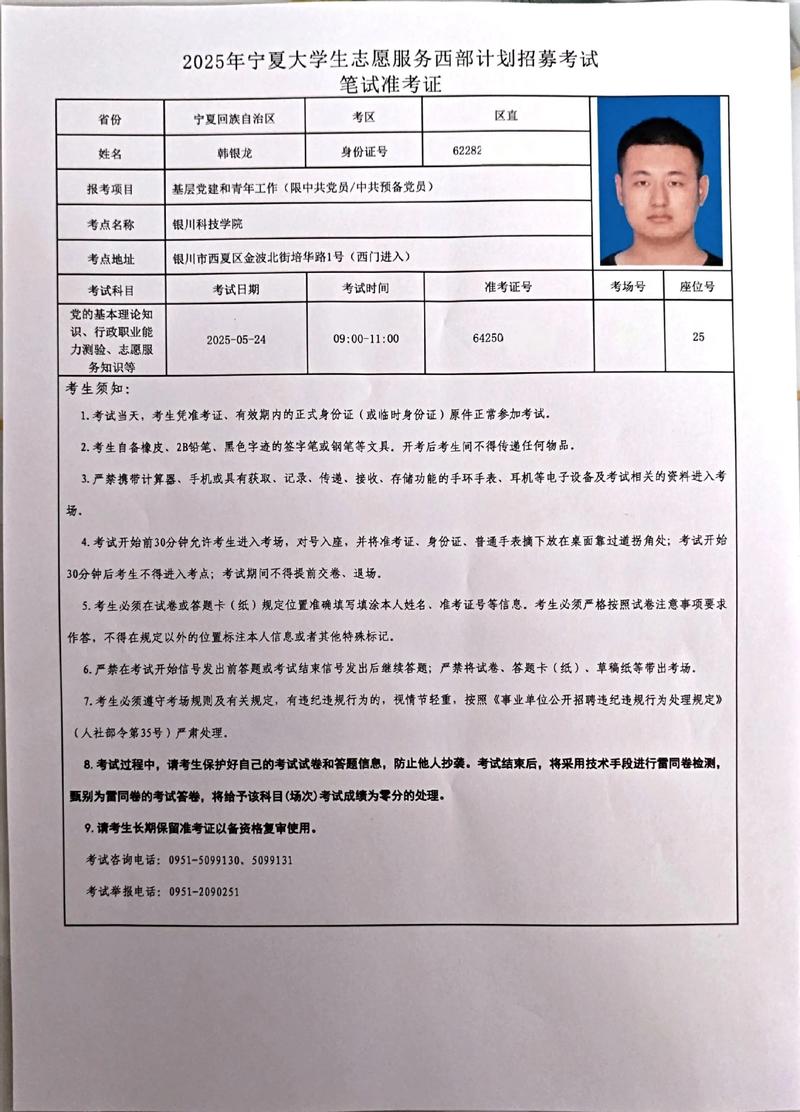 2025年宁夏大学生志愿服务西部计划招募考试
笔试准考证
省份 宁夏回族自治区 考区 区直
姓名 韩银龙 身份证号 62282
报考项目 基层党建和青年工作（限中共党员/中共预备党员）
考点名称 银川科技学院
考点地址 银川市西夏区金波北街培华路1号（西门进入）
考试科目 考试日期 考试时间 准考证号 考场号 座位号
党的基本理论知
识、行政职业能
力测验、志愿服
务知识等
2025-05-24 09:00-11:00 64250 25
考生须知：
1.考试当天，考生凭准考证、有效期内的正式身份证（或临时身份证）原件正常参加考试。
2.考生自备橡皮、2B铅笔、黑色字迹的签字笔或钢笔等文具。开考后考生间不得传递任何物品。
3.严禁携带计算器、手机或具有获取、记录、传递、接收、存储功能的手环手表、耳机等电子设备及考试相关的资料进入考
场。
4.考试开始前30分钟允许考生进入考场，对号入座，并将准考证、身份证、普通手表摘下放在桌面靠过道拐角处；考试开始
30分钟后考生不得进入考点；考试期间不得提前交卷、退场。
5.考生必须在试卷或答题卡（纸）规定位置准确填写填涂本人姓名、准考证号等信息。考生必须严格按照试卷注意事项要求
作答，不得在规定以外的位置标注本人信息或者其他特殊标记。
6.严禁在考试开始信号发出前答题或考试结束信号发出后继续答题；严禁将试卷、答题卡（纸）、草稿纸等带出考场。
7.考生必须遵守考场规则及有关规定，有违纪违规行为的，视情节轻重，按照《事业单位公开招聘违纪违规行为处理规定》
（人社部令第35号）严肃处理。
8.考试过程中，请考生保护好自己的考试试卷和答题信息，防止他人抄袭。考试结束后，将采用技术手段进行雷同卷检测，
甄别为雷同卷的考试答卷，将给予该科目(场次)考试成绩为零分的处理。
9.请考生长期保留准考证以备资格复审使用。
考试咨询电话：0951-5099130、5099131
考试举报电话：0951-2090251